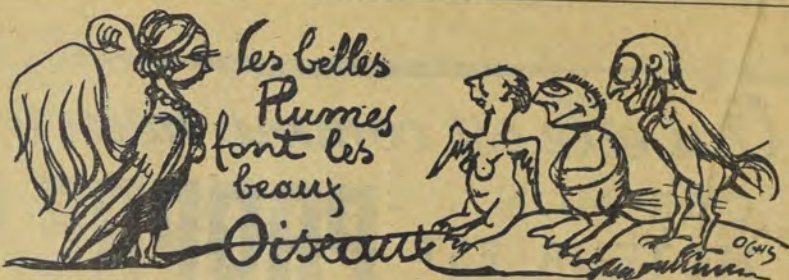 Les belles
Plumes
font les
beaux
Oiseaux
OCHS